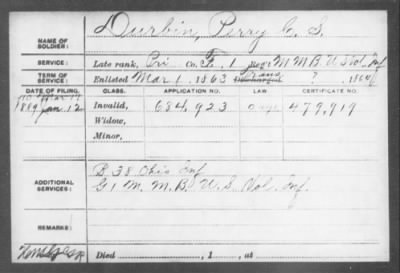 NAME OF SOLDIER: Durbin, Perry C. S.
SERVICE: Late rank, Pri Co. F, 1 Reg't M M B U S Vol. Inf
TERM OF SERVICE: Enlisted Mar 1, 1863 Discharged Trans ?, 1864
DATE OF FILING. CLASS. APPLICATION NO. LAW CERTIFICATE NO.
1889 Jan. 12 Invalid, 684,923 479,919
Widow,
Minor,
ADDITIONAL SERVICES: B 38 Ohio Inf
G 1 M. M. B. U. S. Vol. Inf.
REMARKS:
Died , 1 , at